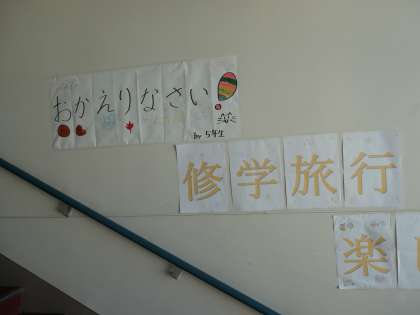 おかえりなさい!
by 5年生
修学旅行
楽